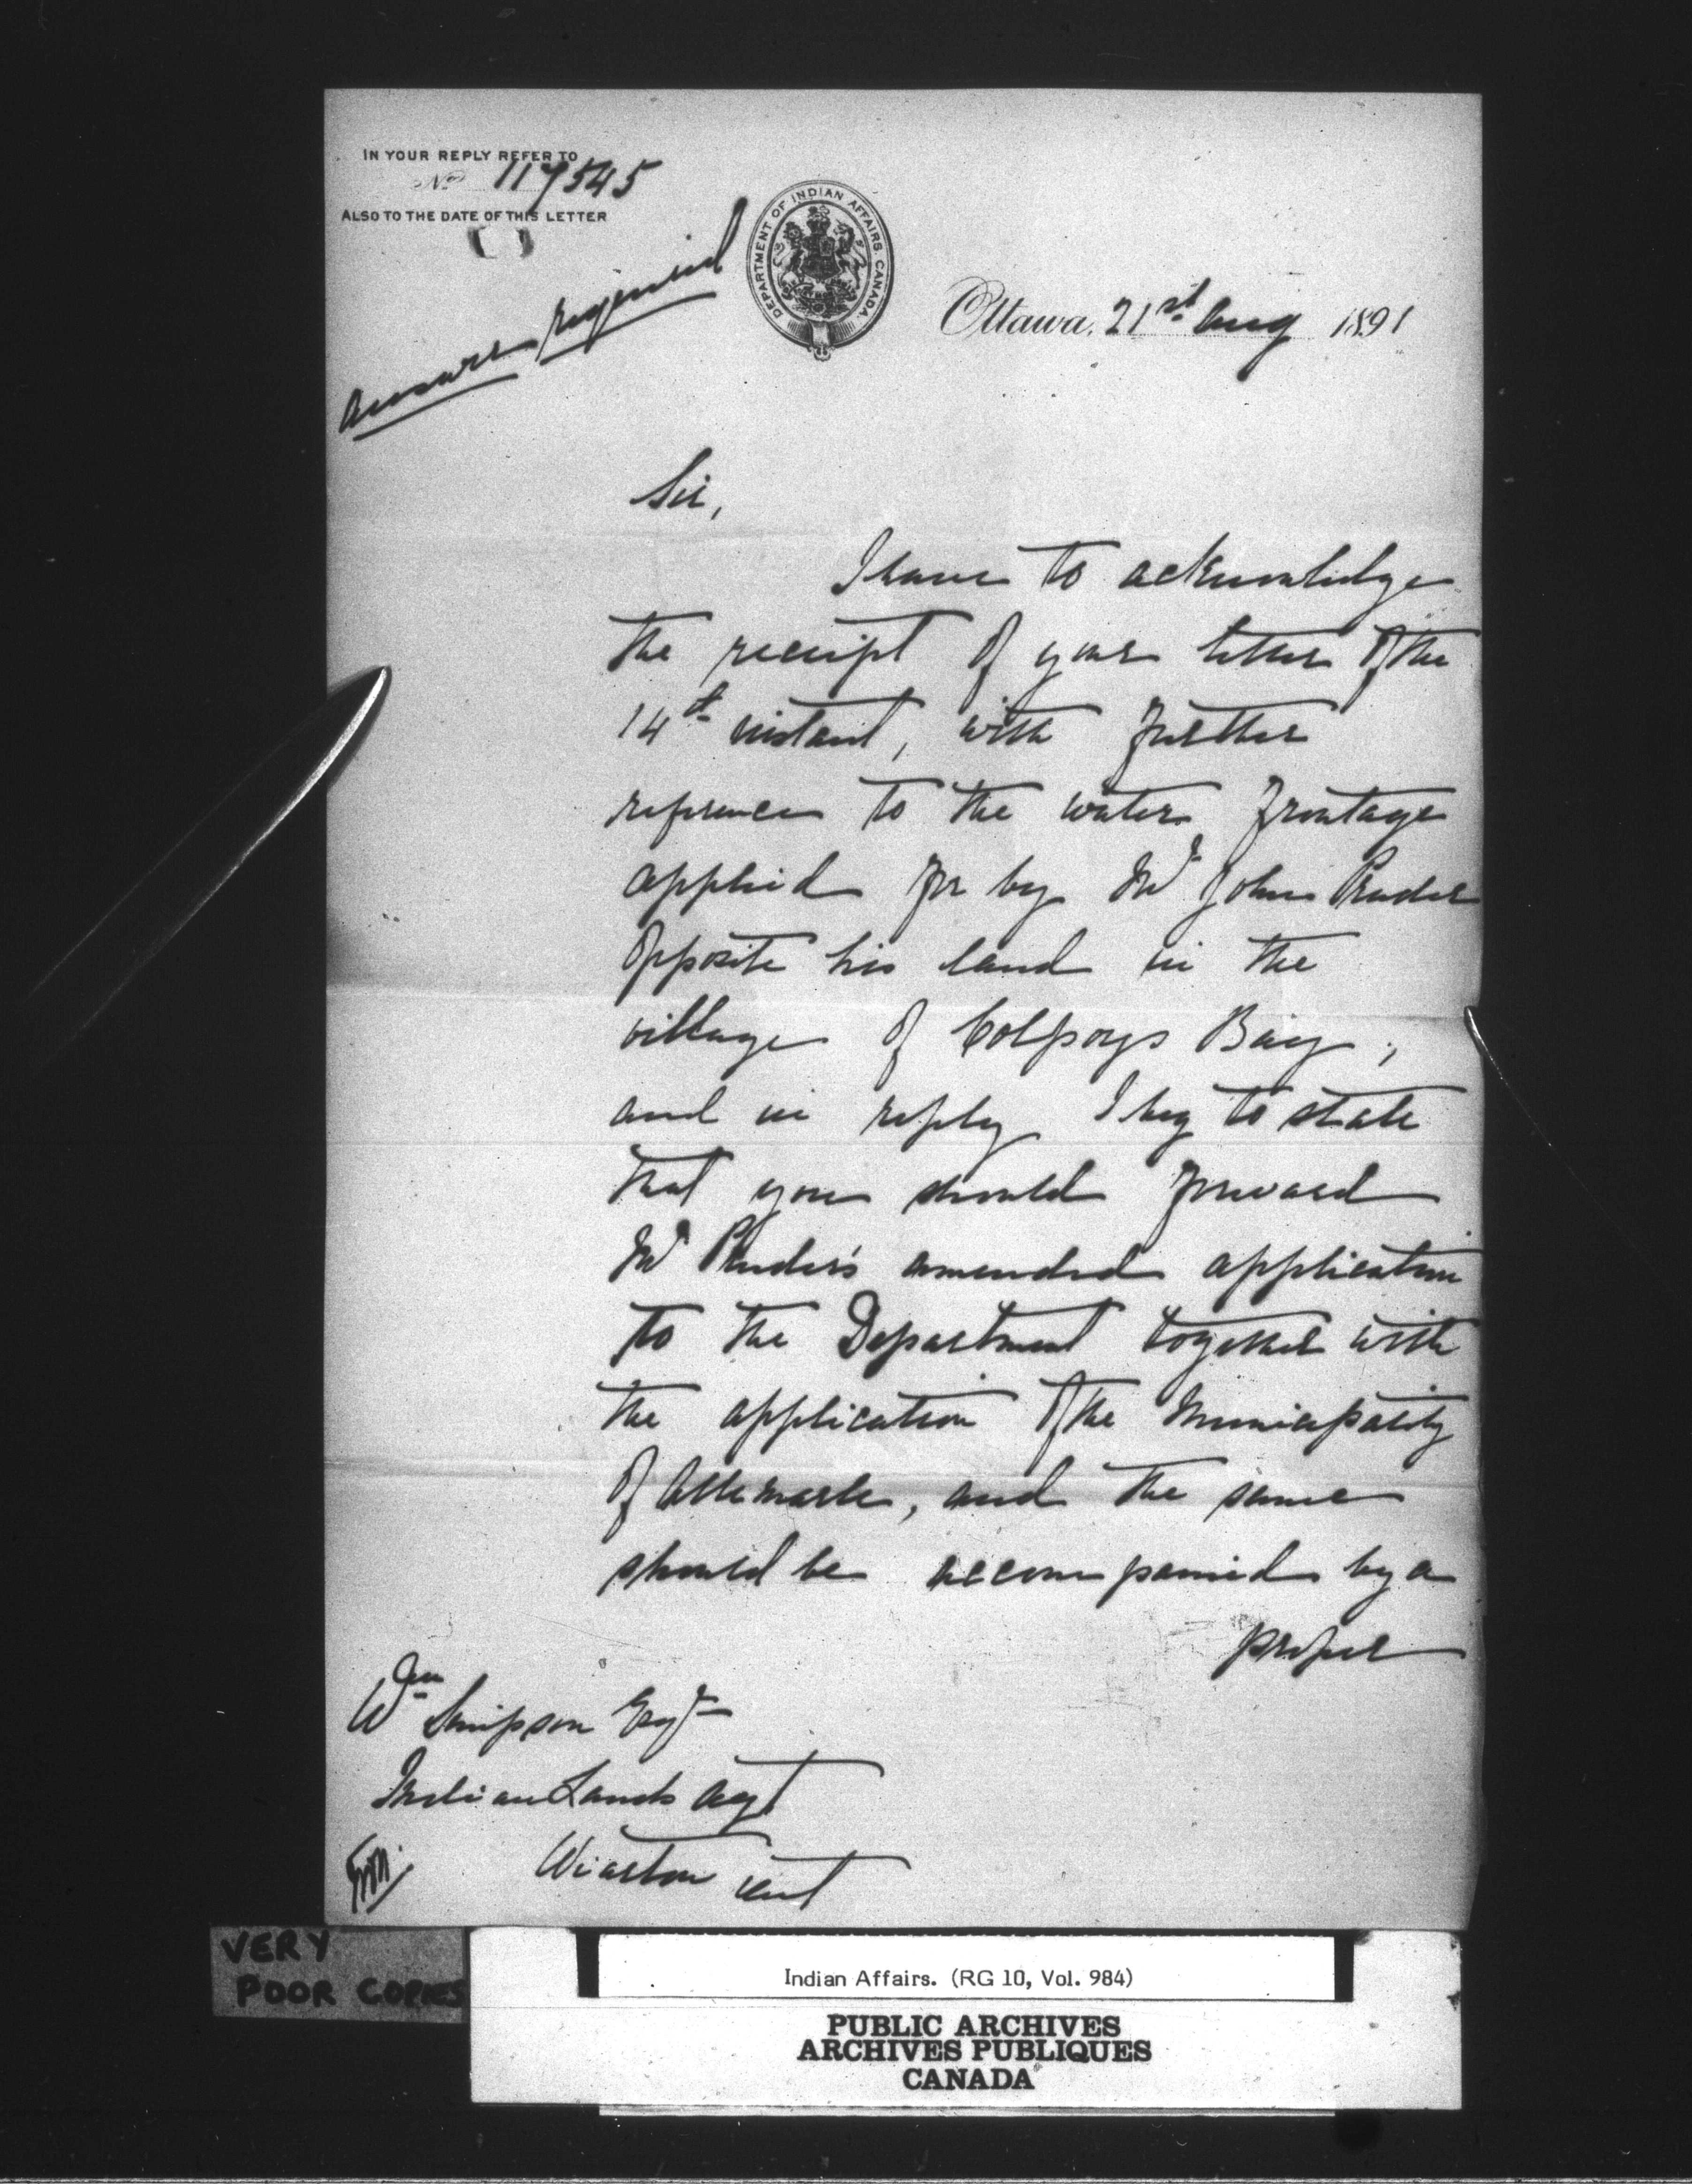 IN YOUR REPLY REFER TO
No 117545
ALSO TO THE DATE OF THIS LETTER
answer required
DEPARTMENT OF INDIAN AFFAIRS CANADA.
Ottawa, 21st Aug 1891
Sir,
I have to acknowledge
the receipt of your letter of the
14th instant, with further
reference to the water frontage
applied for by Mr John
opposite his land in the
village of Colpoys Bay,
and in reply I beg to state
that you should forward
Mr amended application
to the Department together with
the application of the Municipality
of Albemarle, and the same
should be accompanied by a
proper
Wm Simpson Esqr
Indian Lands Agt
Wiarton Ont
VERY
POOR COPIES
Indian Affairs. (RG 10, Vol. 984)
PUBLIC ARCHIVES
ARCHIVES PUBLIQUES
CANADA